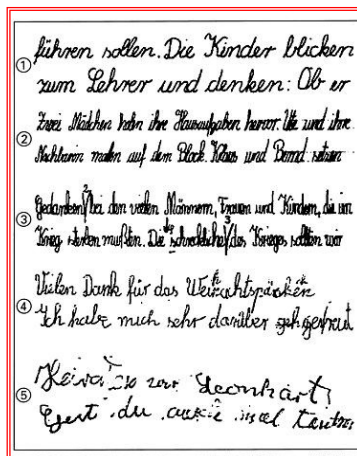 ① führen sollen. Die Kinder blicken
zum Lehrer und denken: Ob er
② Zwei Mädchen holen ihre Hausaufgaben hervor. Ute und ihre
Nachbarin malen auf dem Block. Klaus und Bernd setzen
③ Gedanken bei den vielen Männern, Frauen und Kindern, die im
Krieg sterben mußten. Die schreckliche des Krieges sollten wir
④ Vielen Dank für das
Ich habe mich sehr darüber gefreut
⑤ Leonhart
du